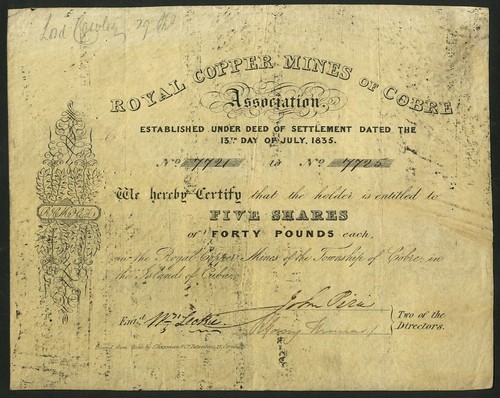 Lord
ROYAL COPPER MINES OF COBRE
Association,
ESTABLISHED UNDER DEED OF SETTLEMENT DATED THE
13TH DAY OF JULY, 1835.
No 7721 to No 7725
We hereby Certify that the holder is entitled to
FIVE SHARES
OF FORTY POUNDS each,
in the Royal Copper Mines of the Township of Cobre, in
the Island of Cuba.
John Pirie
Entd. Wm. Leckie
Two of the
Directors.